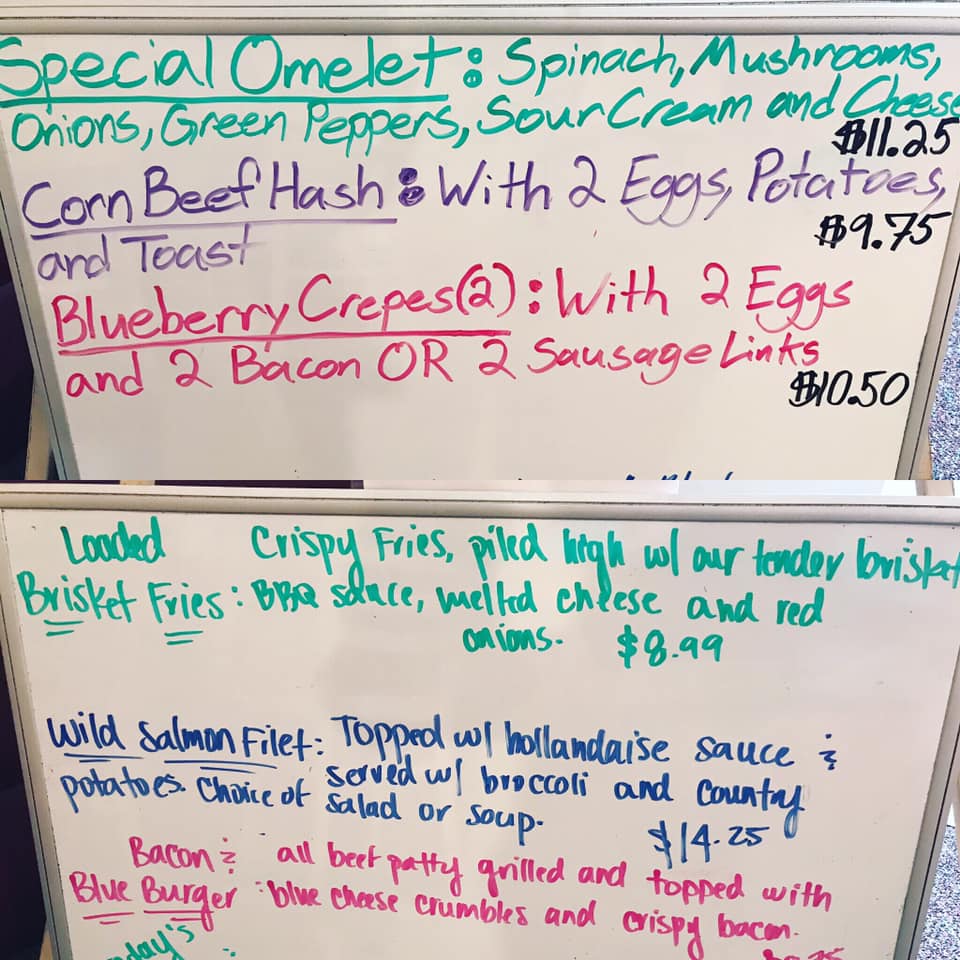 Special Omelet: Spinach, Mushrooms,
Onions, Green Peppers, Sour Cream and Cheese
$11.25
Corn Beef Hash: With 2 Eggs, Potatoes,
and Toast
$9.75
Blueberry Crepes(2): With 2 Eggs
and 2 Bacon OR 2 Sausage Links
$10.50
Loaded Crispy Fries, piled high w/ our tender brisket
Brisket Fries: BBQ sauce, melted cheese and red
onions. $8.99
Wild Salmon Filet: Topped w/ hollandaise sauce &
served w/ broccoli and country
potatoes. Choice of salad or soup.
$14.25
Bacon & all beef patty grilled and topped with
Blue Burger: blue cheese crumbles and crispy bacon.